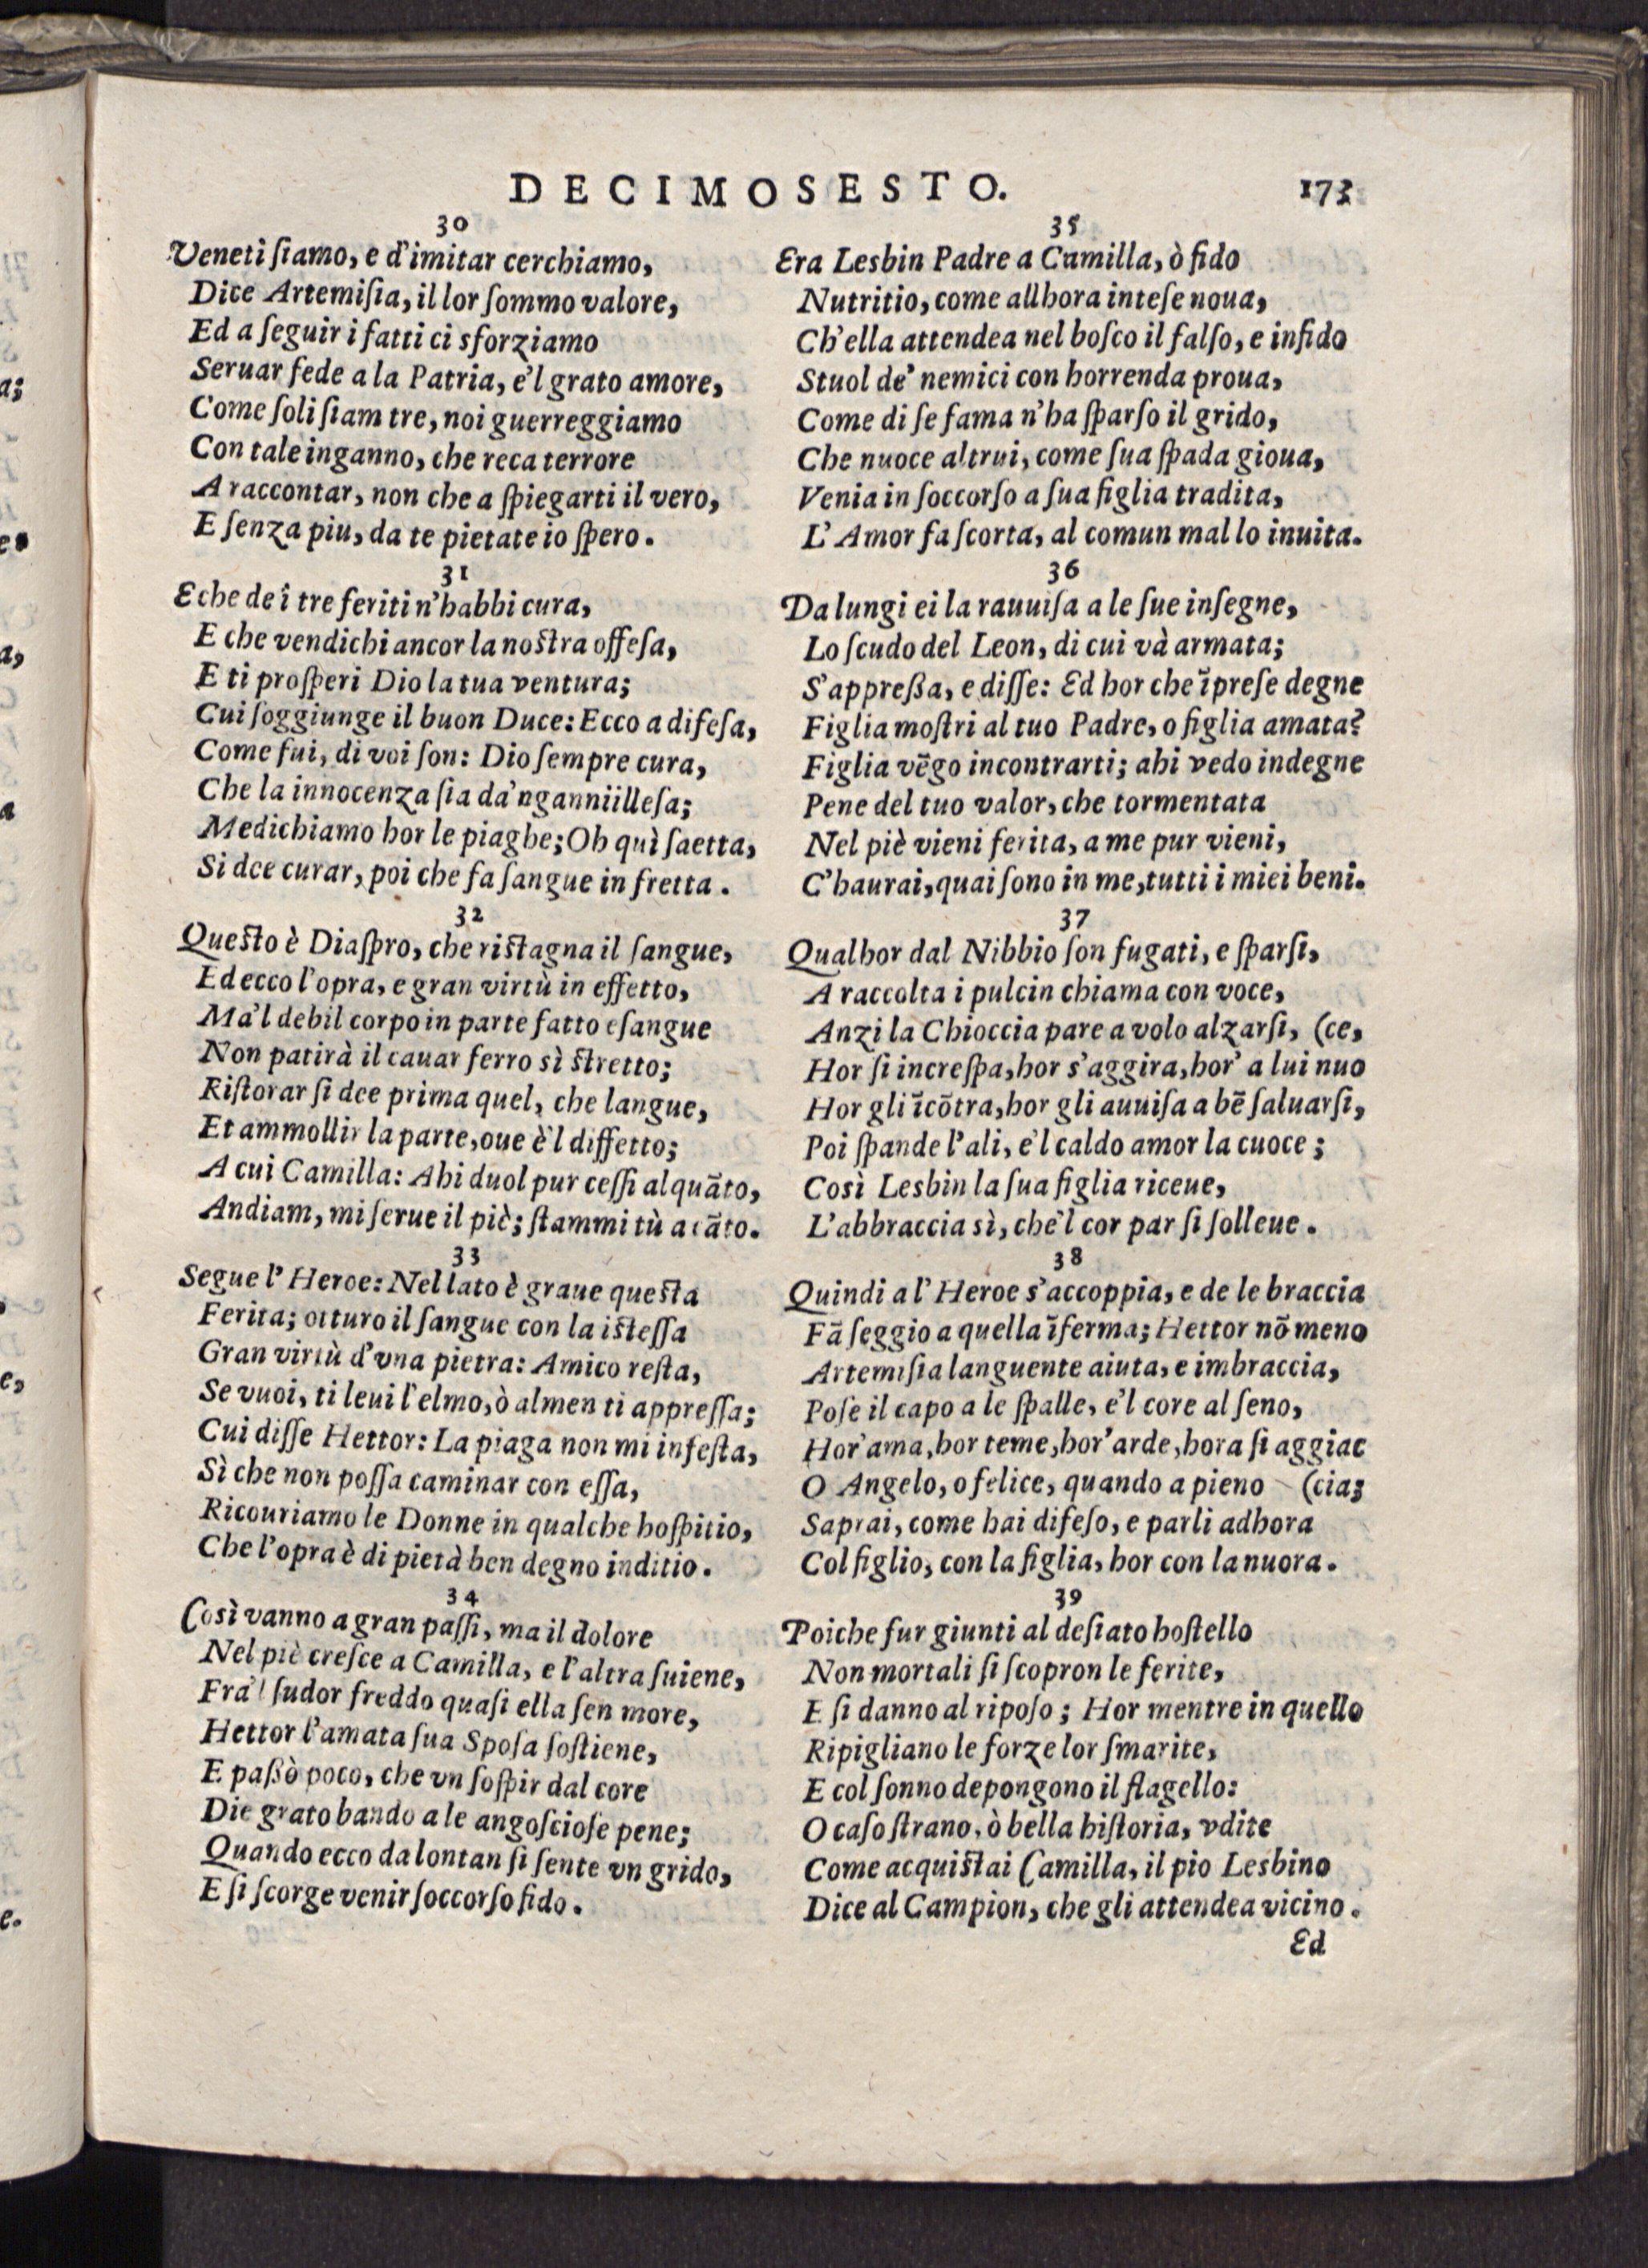 DECIMOSESTO. 173
30
Veneti ſiamo, e d'imitar cerchiamo,
Dice Artemiſia, il lor ſommo valore,
Ed a ſeguir i fatti ci sforziamo
Seruar fede a la Patria, e'l grato amore,
Come ſoli ſiam tre, noi guerreggiamo
Con tale inganno, che reca terrore
A raccontar, non che a ſpiegarti il vero,
E ſenza piu, da te pietate io ſpero.
31
E che de i tre feriti n'habbi cura,
E che vendichi ancor la noſtra offeſa,
E ti proſperi Dio la tua ventura;
Cui ſoggiunge il buon Duce: Ecco a difeſa,
Come fui, di voi ſon: Dio ſempre cura,
Che la innocenza ſia da'nganni illeſa;
Medichiamo hor le piaghe; Oh quì ſaetta,
Si dee curar, poi che fa ſangue in fretta.
32
Queſto è Diaſpro, che riſtagna il ſangue,
Ed ecco l'opra, e gran virtù in effetto,
Ma'l debil corpo in parte fatto eſangue
Non patirà il cauar ferro sì ſtretto;
Riſtorar ſi dee prima quel, che langue,
Et ammollir la parte, oue è'l diffetto;
A cui Camilla: Ahi duol pur ceſſi alquāto,
Andiam, mi ſerue il piè; ſtammi tù a cāto.
33
Segue l'Heroe: Nel lato è graue queſta
Ferita; otturo il ſangue con la iſteſſa
Gran virtù d'vna pietra: Amico reſta,
Se vuoi, ti leui l'elmo, ò almen ti appreſſa;
Cui diſſe Hettor: La piaga non mi infeſta,
Sì che non poſſa caminar con eſſa,
Ricouriamo le Donne in qualche hoſpitio,
Che l'opra è di pietà ben degno inditio.
34
Così vanno a gran paſſi, ma il dolore
Nel piè creſce a Camilla, e l'altra ſuiene,
Frà'l ſudor freddo quaſi ella ſen more,
Hettor l'amata ſua Spoſa ſoſtiene,
E paßò poco, che vn ſoſpir dal core
Die grato bando a le angoſcioſe pene;
Quando ecco da lontan ſi ſente vn grido,
E ſi ſcorge venir ſoccorſo fido.
35
Era Lesbin Padre a Camilla, ò fido
Nutritio, come allhora inteſe noua,
Ch'ella attendea nel boſco il falſo, e infido
Stuol de' nemici con horrenda proua,
Come di ſe fama n'ha ſparſo il grido,
Che nuoce altrui, come ſua ſpada gioua,
Venia in ſoccorſo a ſua figlia tradita,
L'Amor fa ſcorta, al comun mal lo inuita.
36
Da lungi ei la rauuiſa a le ſue inſegne,
Lo ſcudo del Leon, di cui và armata;
S'appreßa, e diſſe: Ed hor che īpreſe degne
Figlia moſtri al tuo Padre, o figlia amata?
Figlia vēgo incontrarti; ahi vedo indegne
Pene del tuo valor, che tormentata
Nel piè vieni ferita, a me pur vieni,
C'haurai, quai ſono in me, tutti i miei beni.
37
Qualhor dal Nibbio ſon fugati, e ſparſi,
A raccolta i pulcin chiama con voce,
Anzi la Chioccia pare a volo alzarſi, (ce,
Hor ſi increſpa, hor s'aggira, hor' a lui nuo
Hor gli īcōtra, hor gli auuiſa a bē ſaluarſi,
Poi ſpande l'ali, e'l caldo amor la cuoce;
Così Lesbin la ſua figlia riceue,
L'abbraccia sì, che'l cor par ſi ſolleue.
38
Quindi a l'Heroe s'accoppia, e de le braccia
Fā ſeggio a quella īferma; Hettor nō meno
Artemiſia languente aiuta, e imbraccia,
Poſe il capo a le ſpalle, e'l core al ſeno,
Hor'ama, hor teme, hor'arde, hora ſi aggiac
O Angelo, o felice, quando a pieno (cia;
Saprai, come hai difeſo, e parli adhora
Col figlio, con la figlia, hor con la nuora.
39
Poiche fur giunti al deſiato hoſtello
Non mortali ſi ſcopron le ferite,
E ſi danno al ripoſo; Hor mentre in quello
Ripigliano le forze lor ſmarite,
E col ſonno depongono il flagello:
O caſo ſtrano, ò bella hiſtoria, vdite
Come acquiſtai Camilla, il pio Lesbino
Dice al Campion, che gli attendea vicino.
Ed